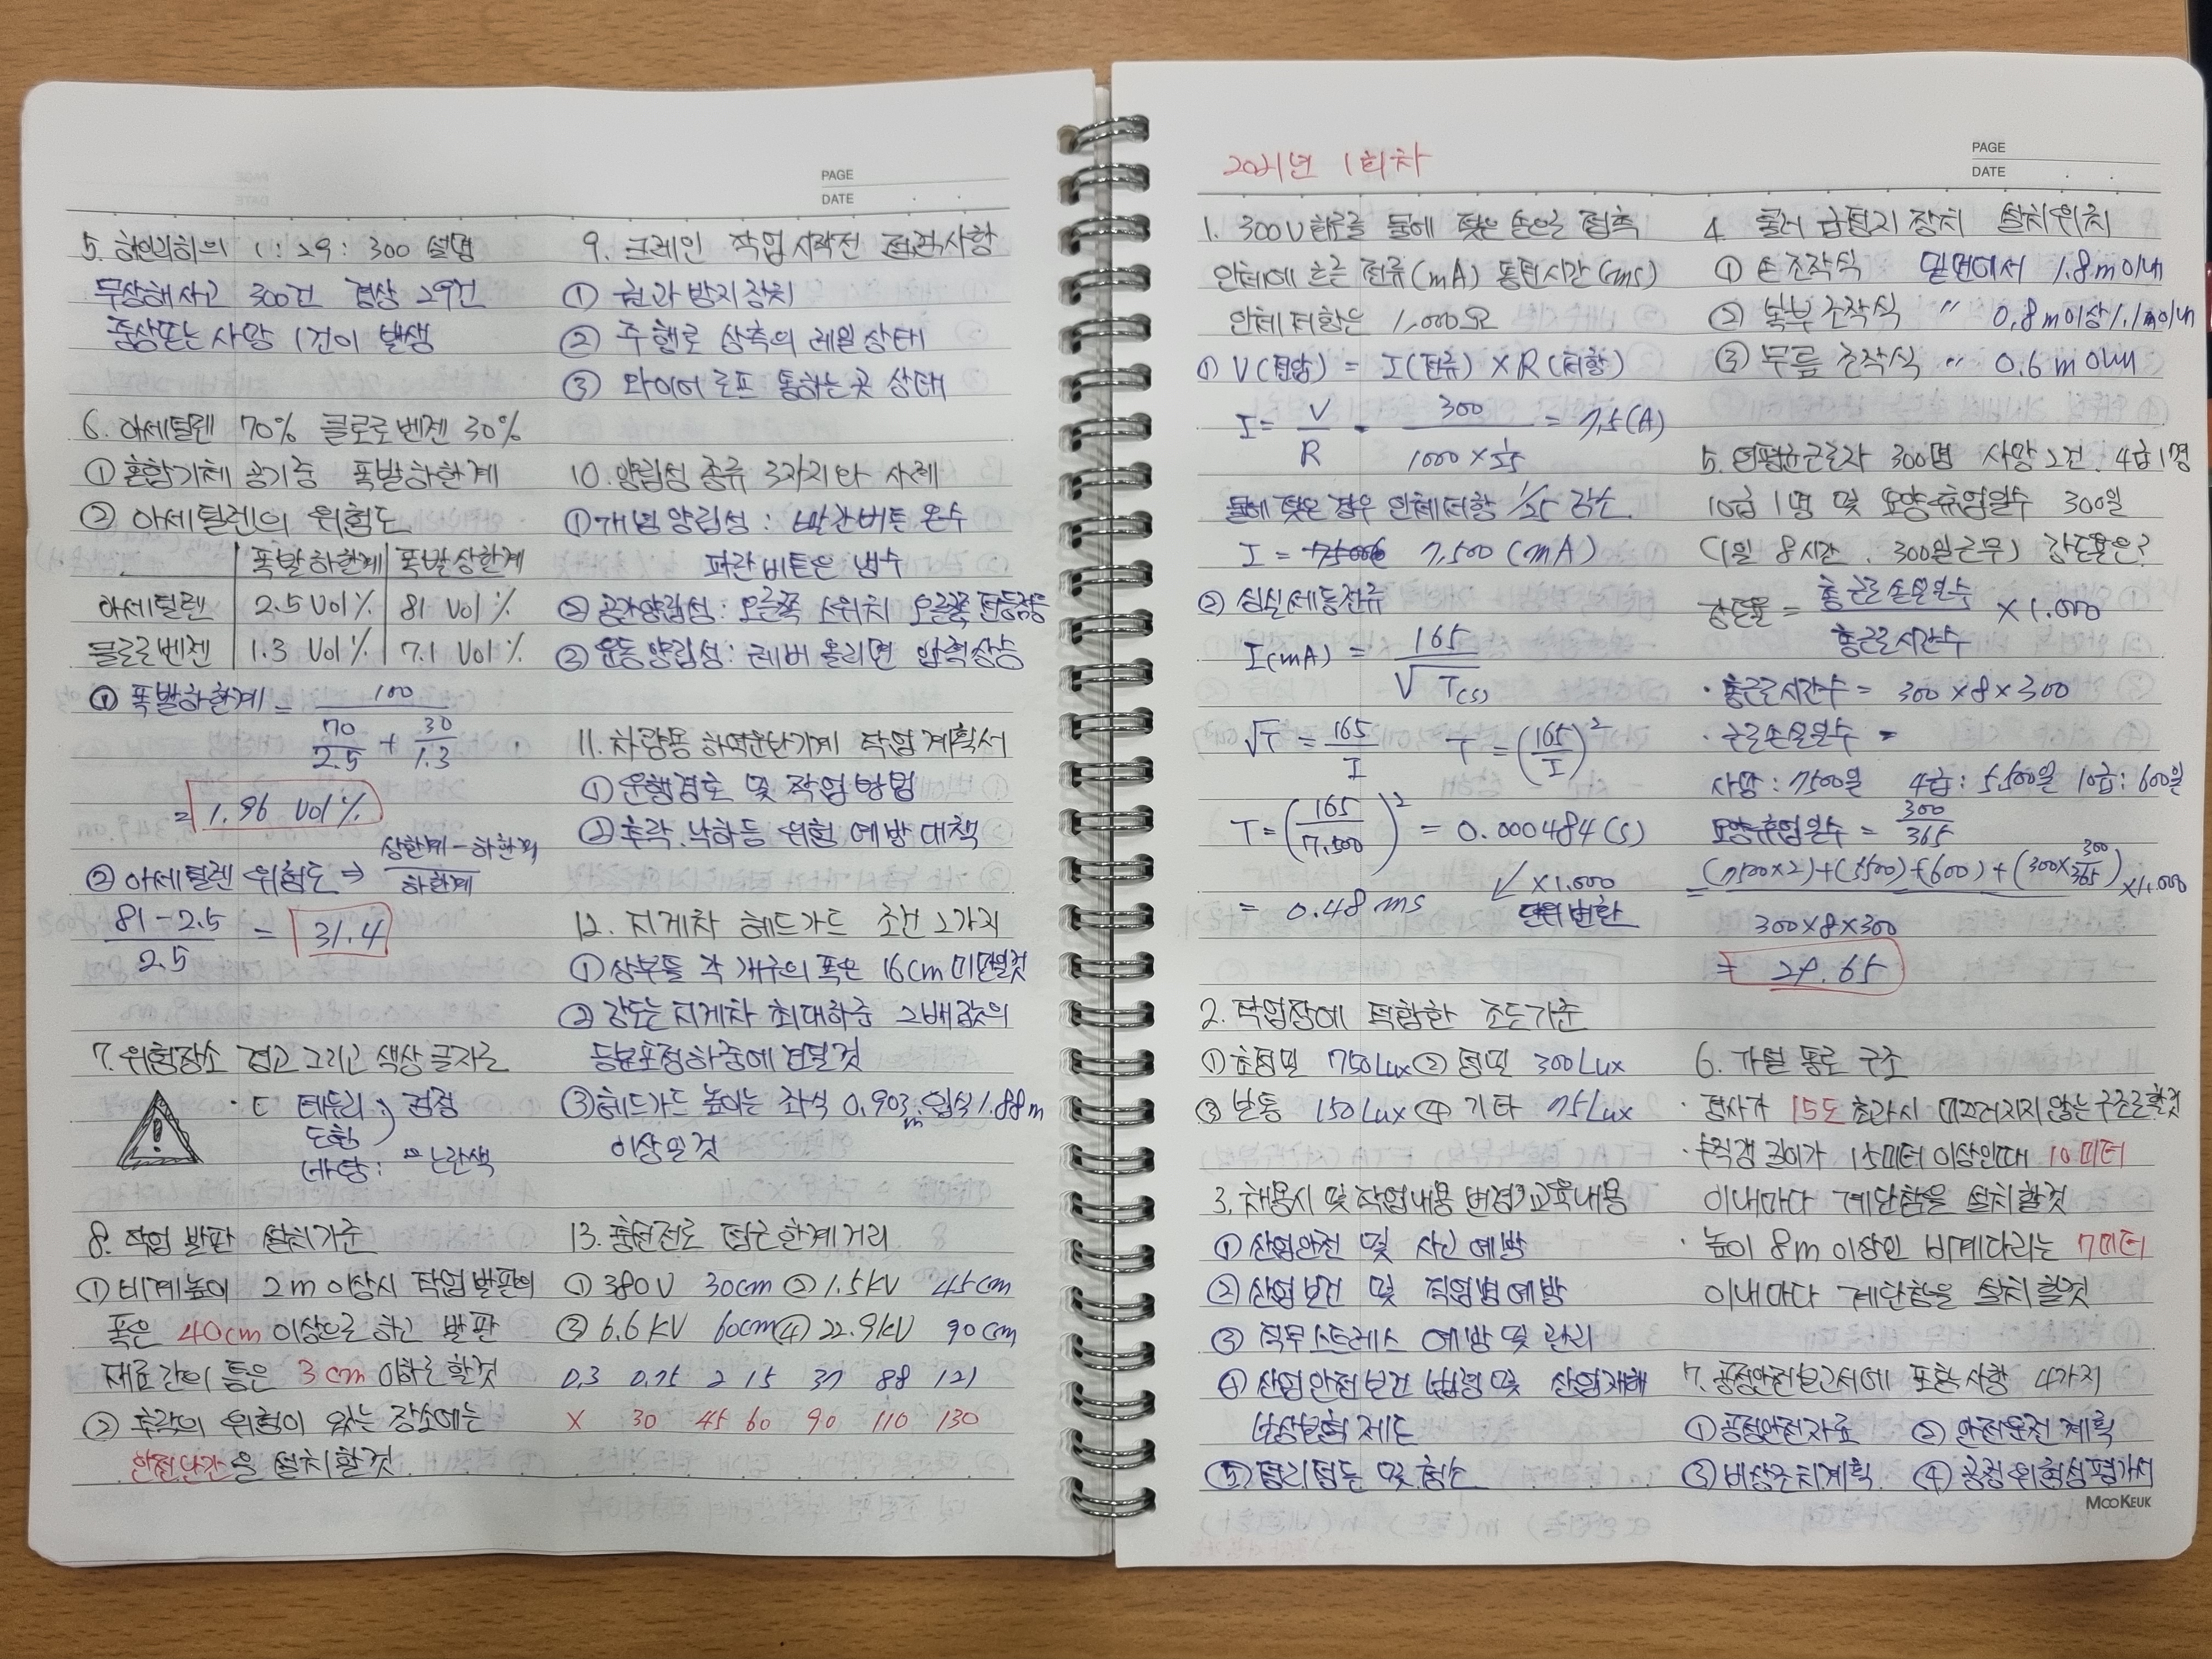 PAGE
DATE
5. 하인리히의 1 : 29 : 300 설명
무상해사고 300건 경상 29건
중상또는 사망 1건이 발생
6. 아세틸렌 70% 클로로벤젠 30%
① 혼합기체 공기중 폭발하한계
② 아세틸렌의 위험도
폭발하한계 폭발상한계
아세틸렌 2.5 Vol% 81 Vol%
클로로벤젠 1.3 Vol% 7.1 Vol%
① 폭발하한계 = 100 / (70/2.5 + 30/1.3)
= 1.96 Vol%
② 아세틸렌 위험도 ⇒ 상한계 - 하한계 / 하한계
81 - 2.5 / 2.5 = 31.4
7. 위험장소 경고 그리고 색상 글자로
테두리, 검정
도형
바탕: 노란색
8. 작업 발판 설치기준
① 비계높이 2m 이상시 작업발판의
폭은 40cm 이상으로 하고 발판
재료간의 틈은 3cm 이하로 할것
② 추락의 위험이 있는 장소에는
안전난간을 설치할것
9. 크레인 작업시작전 점검사항
① 권과방지장치
② 주행로 상측의 레일상태
③ 와이어로프 통하는곳 상태
10. 양립성 종류 3가지와 사례
① 개념양립성 : 빨간버튼 온수
파란버튼은 냉수
② 공간양립성 : 오른쪽 스위치 오른쪽 전등점등
③ 운동양립성 : 레버 올리면 압력상승
11. 차량용 하역운반기계 작업계획서
① 운행경로 및 작업방법
② 추락.낙하등 위험 예방대책
12. 지게차 헤드가드 조건 2가지
① 상부틀 각 개구의 폭은 16cm 미만일것
② 강도는 지게차 최대하중 2배값의
등분포정하중에 견딜것
③ 헤드가드 높이는 좌식 0.903m 입식 1.88m
이상일것
13. 충전전로 접근한계거리
① 380V 30cm ② 1.5kV 45cm
③ 6.6kV 60cm ④ 22.9kV 90cm
0.3 0.75 2 15 37 88 121
X 30 45 60 90 110 130
2021년 1회차
PAGE
DATE
1. 300V 회로를 물에 젖은 손으로 접촉
인체에 흐른 전류(mA) 통전시간(ms)
인체저항은 1,000Ω
① V(전압) = I(전류) × R(저항)
I = V/R = 300 / 1000 × 1/25 = 7.5(A)
물에 젖은 경우 인체저항 1/25 감소.
I = 7,500 (mA)
② 심실세동전류
I(mA) = 165 / √T(s)
√T = 165/I T = (165/I)²
T = (165/7,500)² = 0.000484(s)
= 0.48ms ×1,000
단위변환
2. 작업장에 적합한 조도기준
① 초정밀 750Lux ② 정밀 300Lux
③ 보통 150Lux ④ 기타 75Lux
3. 채용시 및 작업내용 변경? 교육내용
① 산업안전 및 사고예방
② 산업보건 및 직업병예방
③ 직무스트레스 예방 및 관리
④ 산업안전보건 법령 및 산업재해
보상보험 제도
⑤ 정리정돈 및 청소
4. 롤러 급정지 장치 설치위치
① 손조작식 밑면에서 1.8m이내
② 복부조작식 〃 0.8m이상 1.1m이내
③ 무릎 조작식 〃 0.6m이내
5. 연평균근로자 300명 사망 2건. 4급 1명
10급 1명 및 요양휴업일수 300일
(1일 8시간. 300일근무) 강도율은?
강도율 = 총근로손실일수 / 총근로시간수 × 1.000
· 총근로시간수 = 300 × 8 × 300
· 근로손실일수 =
사망 : 7500일 4급 : 5500일 10급 : 600일
요양휴업일수 = 300/365
= (7500×2)+(5500)+(600)+(300×300/365) / 300×8×300 ×1.000
= 29.65
6. 가설 통로 구조
· 경사가 15도 초과시 미끄러지지 않는 구조로 할것
· 수직갱 길이가 15미터 이상인때 10미터
이내마다 계단참을 설치할것
· 높이 8m 이상인 비계다리는 7미터
이내마다 계단참을 설치할것
7. 공정안전보고서에 포함사항 4가지
① 공정안전자료 ② 안전운전계획
③ 비상조치계획 ④ 공정위험성평가서
MOOKEUK